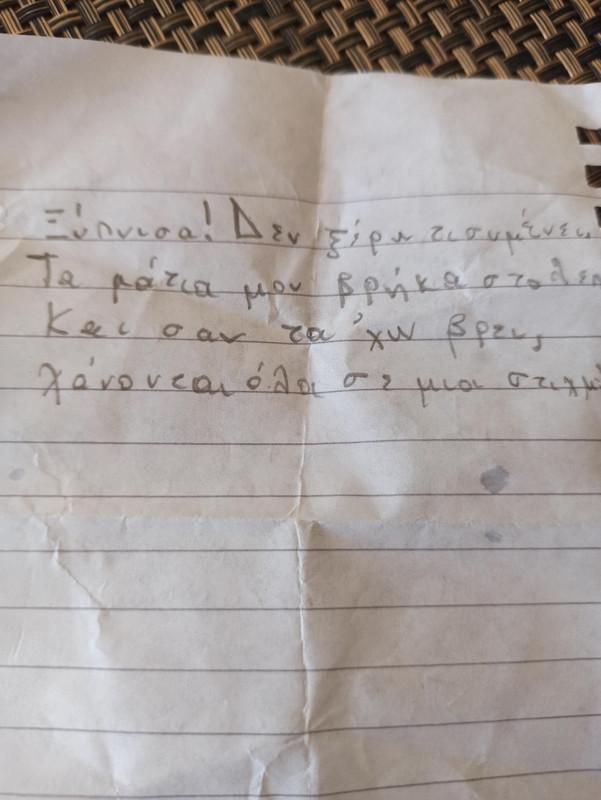 Ξύπνισα! Δεν ξέρω τι συμένει,
Τα μάτια μου βρήκα στο
Και σαν τα 'χω βρει,
χάνονται όλα σε μια στιγμή